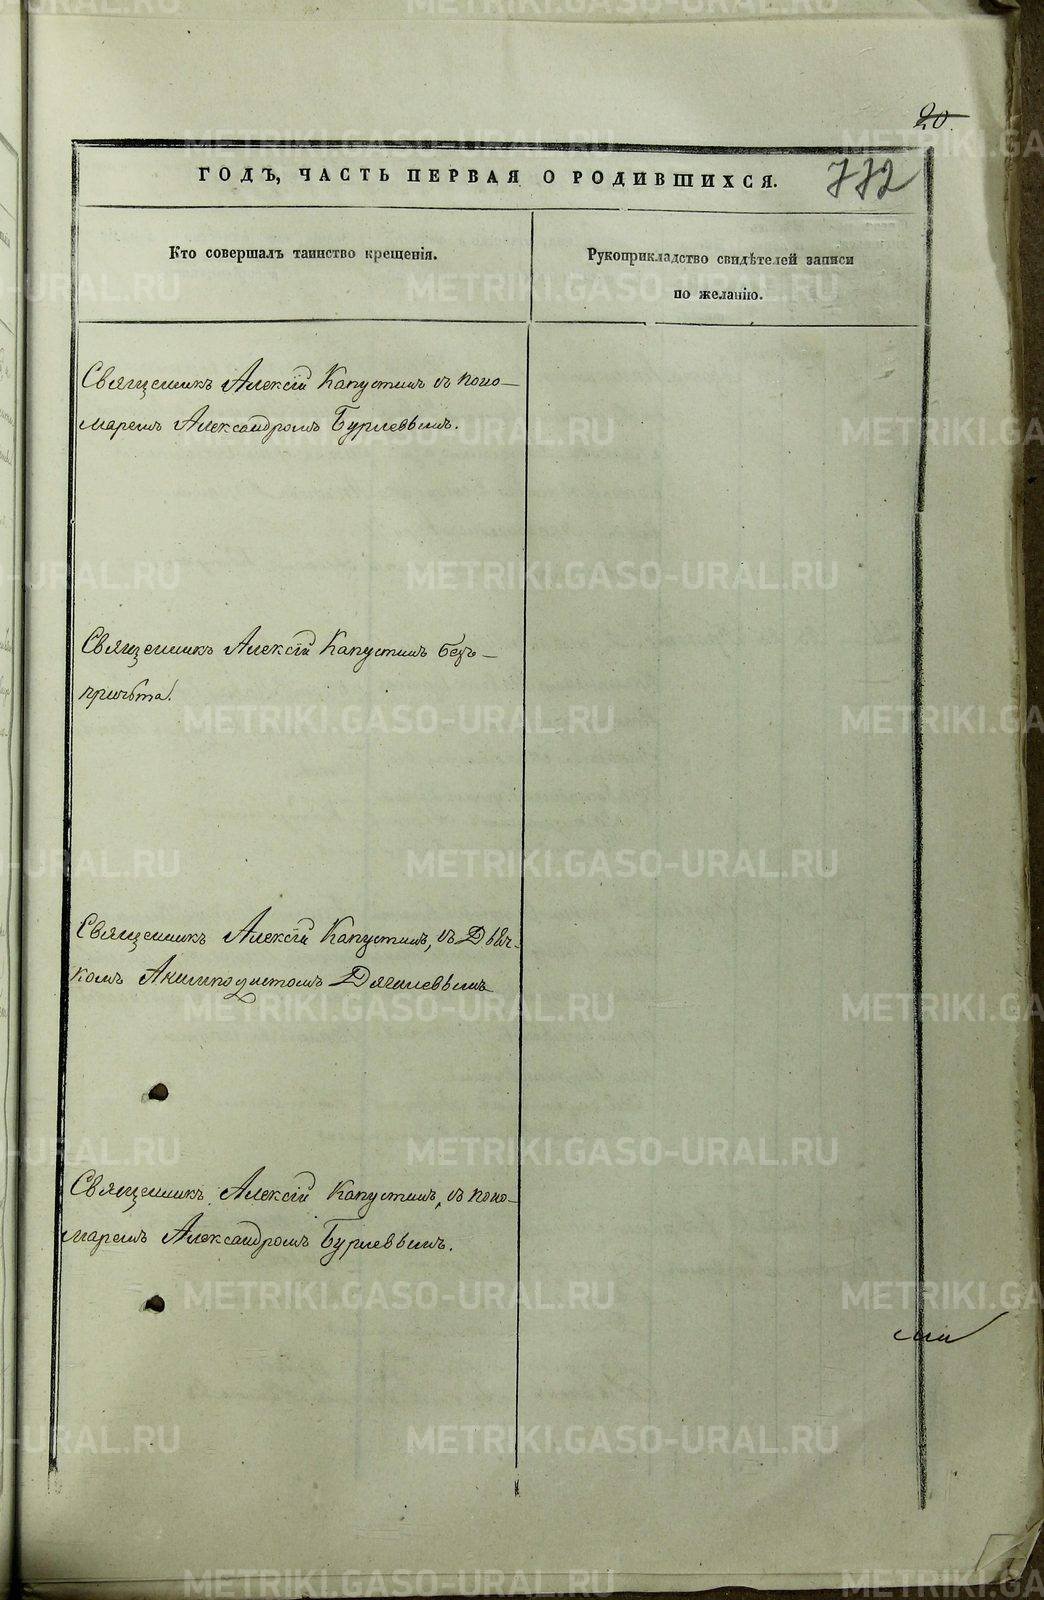 20.
ГОДЪ, ЧАСТЬ ПЕРВАЯ О РОДИВШИХСЯ.
772
Кто совершалъ таинство крещенія.
Рукоприкладство свидѣтелей записи
по желанію.
Священникъ Алексій Капустинъ съ поно-
маремъ Александромъ Бурлевымъ.
Священникъ Алексій Капустинъ безъ-
причта.
Священникъ Алексій Капустинъ, съ Дьяч-
комъ Анемподистомъ Дягилевымъ
Священникъ Алексій Капустинъ, съ поно-
маремъ Александромъ Бурлевымъ.
METRIKI.GASO-URAL.RU